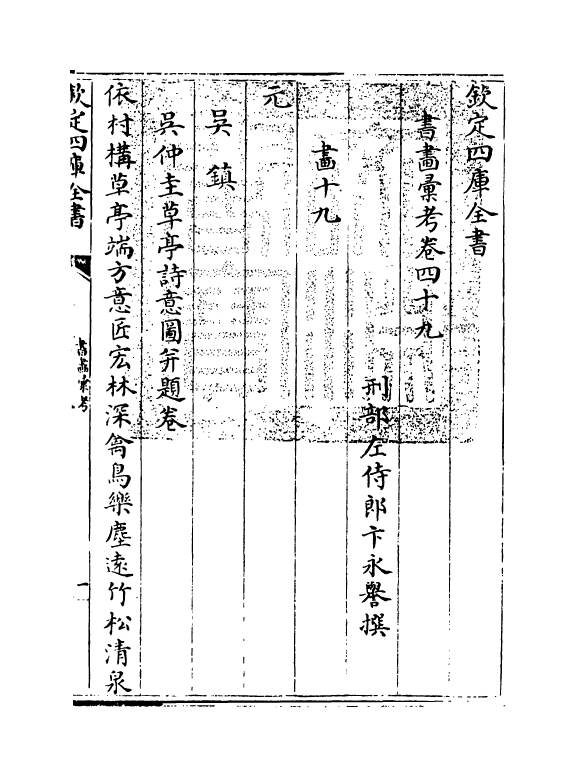 欽定四庫全書
書畵彚考卷四十九
刑部左侍郎卞永譽撰
畵十九
元
吳鎮
吳仲圭草亭詩意圖并題卷
依村構草亭端方意匠宏林深禽鳥樂塵逺竹松清泉
欽定四庫全書
書畵彚考
一